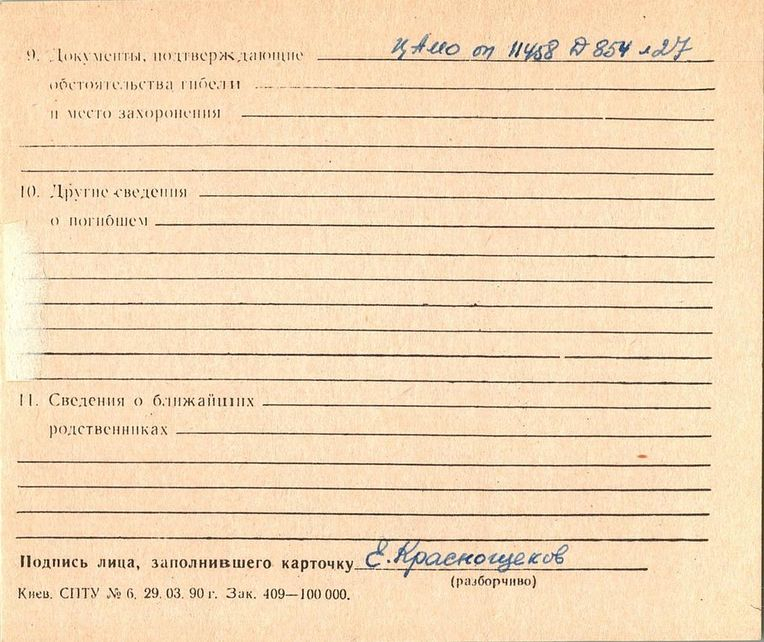 9. Документы, подтверждающие ЦАМО оп 11458 Д 854 л27
обстоятельства гибели
и место захоронения
10. Другие сведения
о погибшем
11. Сведения о ближайших
родственниках
Подпись лица, заполнившего карточку Е. Краснощеков
(разборчиво)
Киев. СПТУ № 6. 29. 03. 90 г. Зак. 409—100 000.